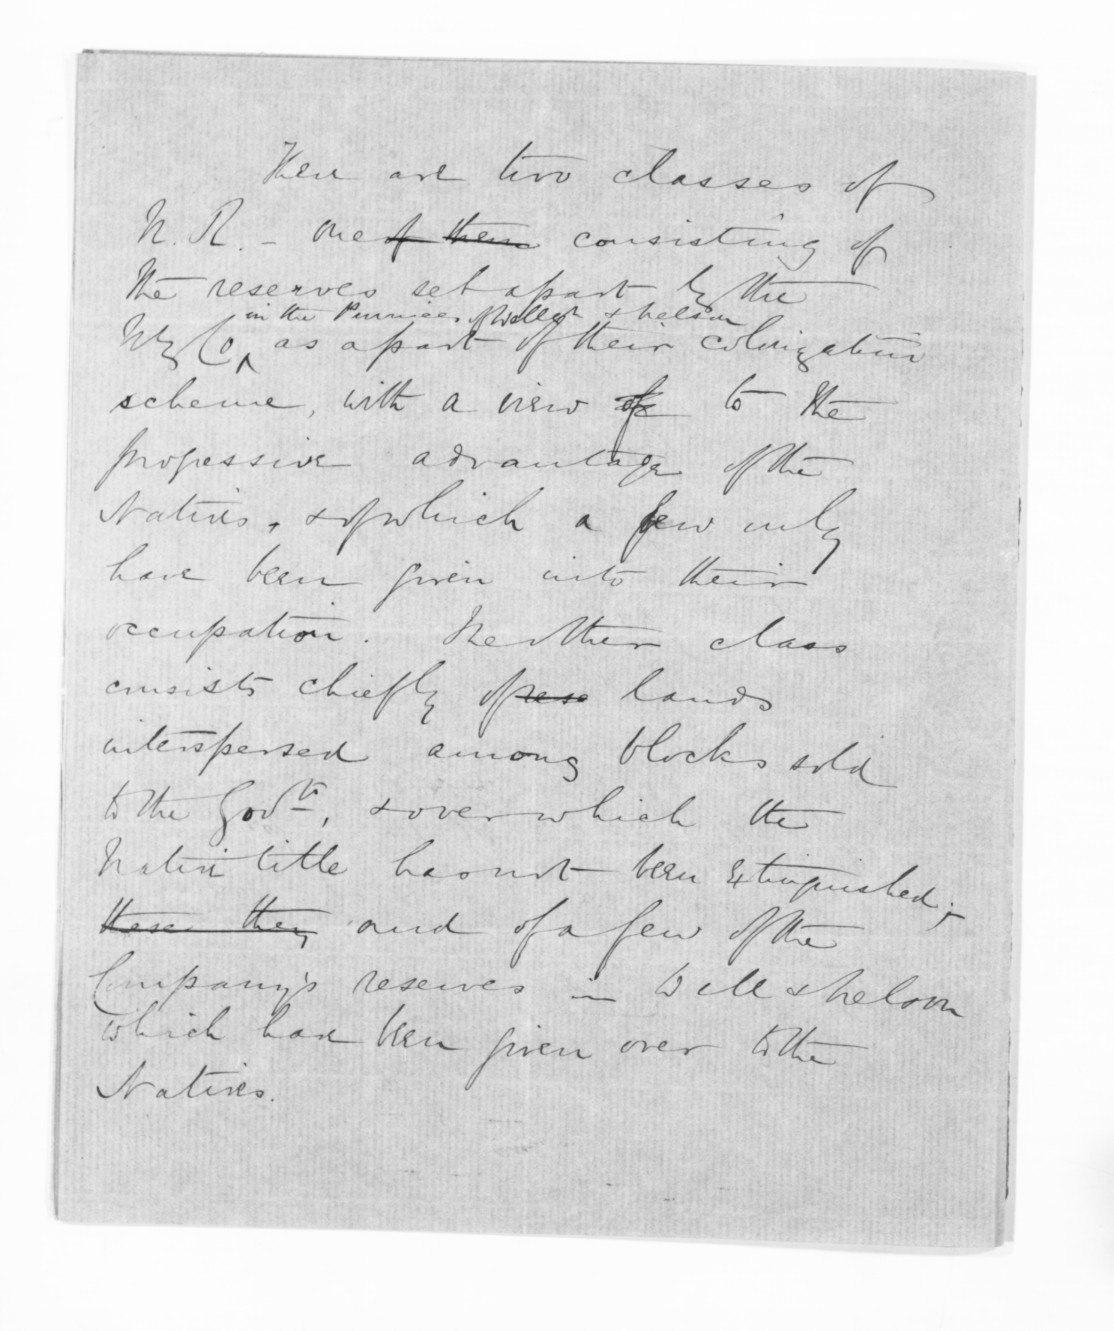 There are two classes of
N. R. - one of them consisting of
the reserves set apart by the
in the Provinces of Wellgtn & Nelson
NZ Co. as a part of their colonization
scheme, with a view of to the
progressive advantage of the
Natives, & of which a few only
have been given into their
occupation. The other class
consists chiefly of rese lands
interspersed among blocks sold
to the Govt., & over which the
Native title has not been extinguished;
these they and of a few of the
Company's reserves in Well & Nelson
which have been given over to the
Natives.